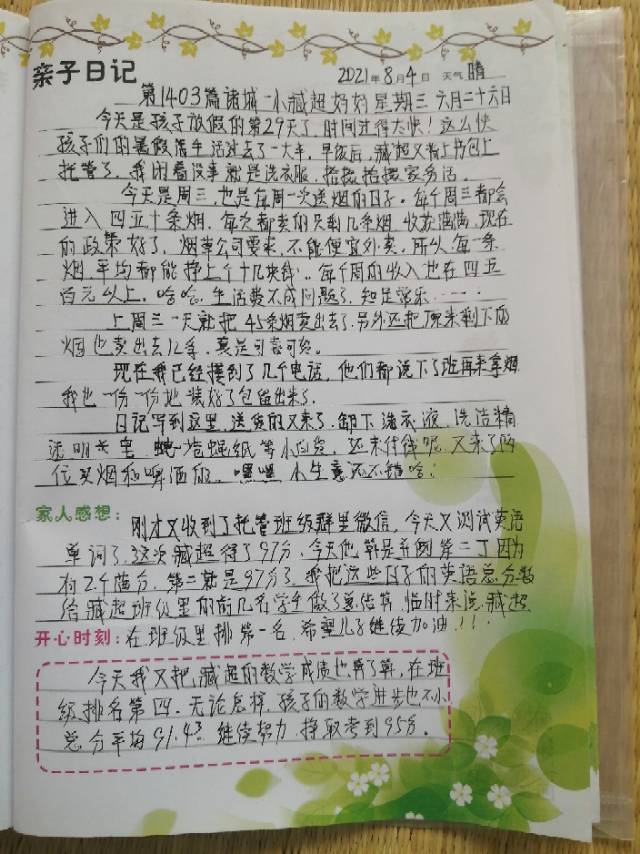 亲子日记
2021年8月4日 天气 晴
第1403篇诸城一小臧超妈妈星期三六月二十六日
今天是孩子放假的第29天了,时间过得太快!这么快
孩子们的暑假落生活过去了一大半,早饭后,臧超又背上书包上
托管了,我闲着没事就是洗衣服,拾掇拾掇家务活。
今天是周三,也是每周一次送烟的日子。每个周三都会
进入四五十条烟,每次都卖的只剩几条烟,收获满满,现在
的政策好了,烟草公司要求,不能便宜外卖,所以每一条
烟,平均都能挣上个十几块钱…每个周的收入也在四五
百元以上,哈哈,生活费不成问题了,知足常乐……
上周三一天就把45条烟卖出去了,另外还把原来剩下的
烟也卖出去几条,真是可喜可贺。
现在我已经接到了几个电话,他们都说下了班再来拿烟
我也一份一份地装好了包留出来了.
日记写到这里,送货的又来了.卸下洗衣液,洗洁精
透明皂,粘蝇纸等小百货,还未付钱呢,又来了两
位买烟和啤酒的,嘿嘿,小生意还不错哈!
家人感想:
刚才又收到了托管班级群里微信,今天又测试英语
单词了,这次臧超得了97分,今天他算是并列第二了因为
有2个满分,第二就是97分了,我把这些日子的英语总分数
给臧超班级里的前几名学生做了总结算,临时来说臧超
开心时刻:在班级里排第一名,希望儿子继续加油!!!
今天我又把臧超的数学成绩也算了算,在班
级排名第四.无论怎样,孩子的数学进步也不小
总分平均91.43,继续努力,挣取考到95分。